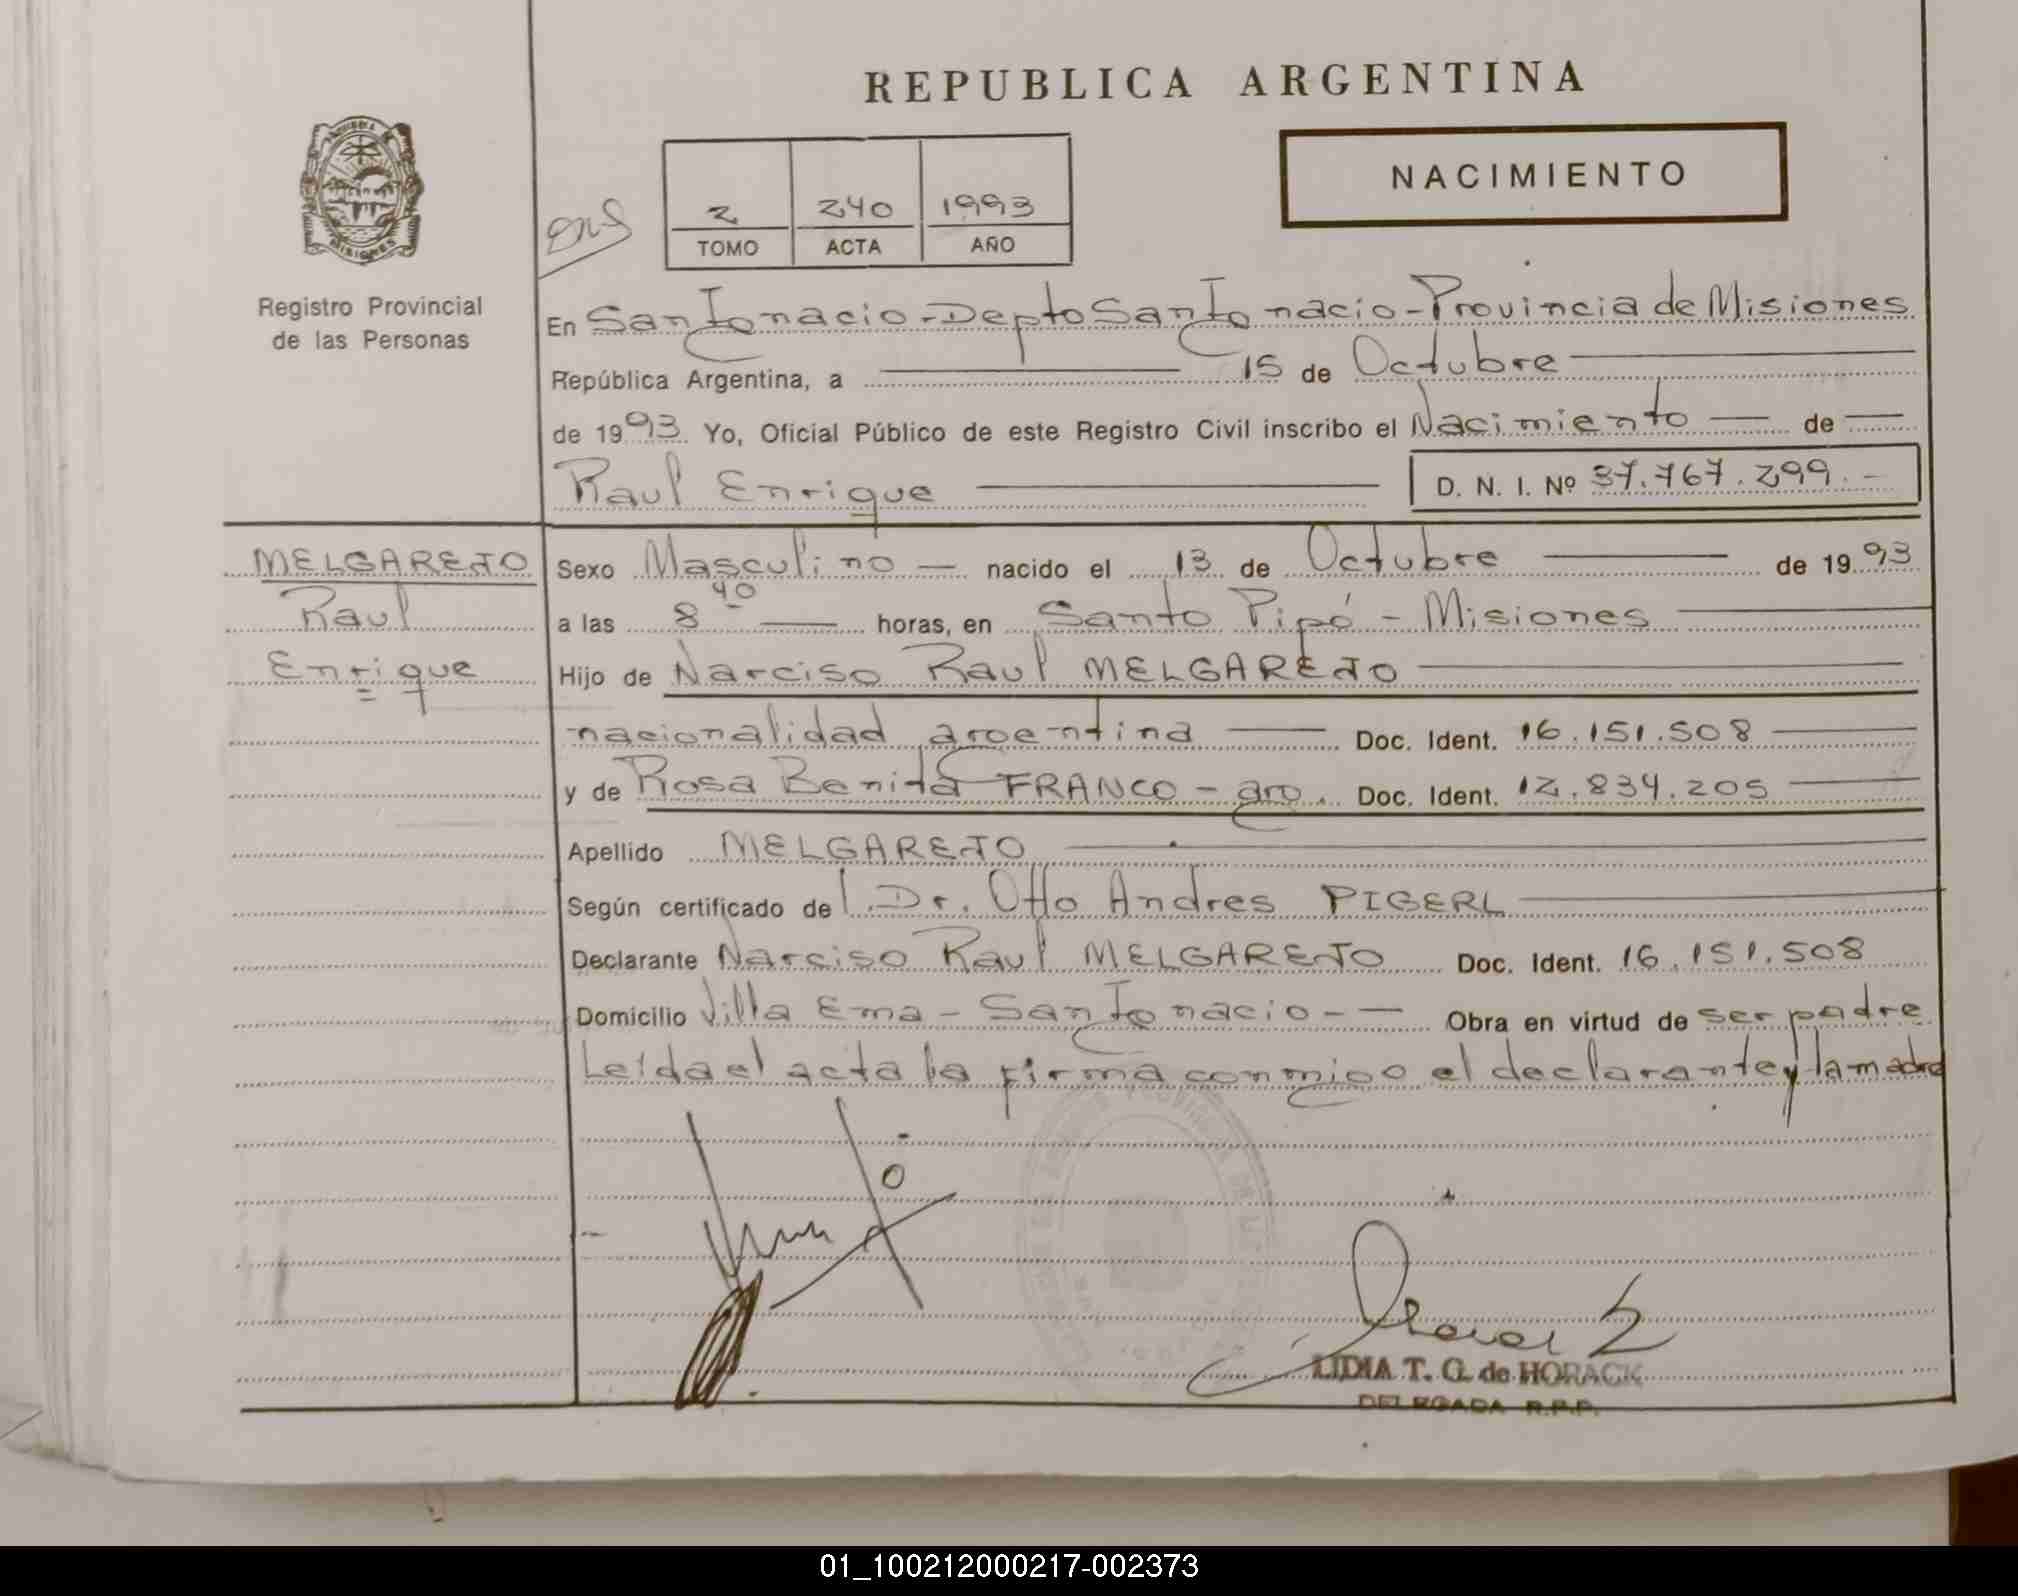 REPUBLICA ARGENTINA
NACIMIENTO
2 240 1993
TOMO ACTA AÑO
Registro Provincial
de las Personas
En San Ignacio - Depto San Ignacio - Provincia de Misiones
República Argentina, a 15 de Octubre
de 1993 Yo, Oficial Público de este Registro Civil inscribo el Nacimiento de
Raul Enrique D. N. I. Nº 37.767.299.-
MELGAREJO
Raul
Enrique
Sexo Masculino nacido el 13 de Octubre de 1993
a las 8 40 horas, en Santo Pipó - Misiones
Hijo de Narciso Raul MELGAREJO
nacionalidad argentina Doc. Ident. 16.151.508
y de Rosa Benita FRANCO - arg. Doc. Ident. 12.834.205
Apellido MELGAREJO
Según certificado del Dr. Otto Andres PIGERL
Declarante Narciso Raul MELGAREJO Doc. Ident. 16.151.508
Domicilio Villa Ema - San Ignacio - Obra en virtud de ser padre
Leída el acta la firma conmigo el declarante y la madre
LIDIA T. G. de HORACK
DELEGADA R.P.P.
01_100212000217-002373